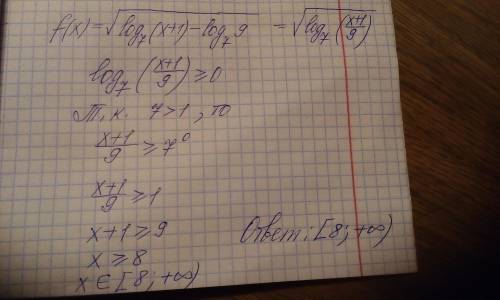 f(x)=√(log₇(x+1)-log₇9) = √(log₇((x+1)/9))
log₇((x+1)/9)≥0
Т.к. 7>1, то
(x+1)/9≥7⁰
(x+1)/9≥1
x+1≥9
x≥8
x∈[8;+∞)
Ответ:[8;+∞)